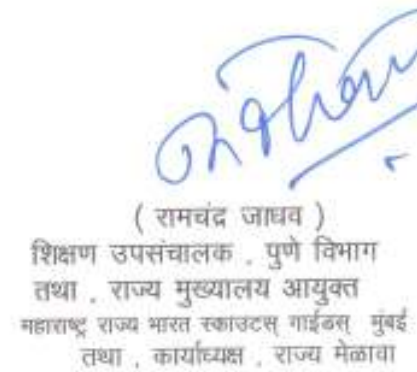 ( रामचंद्र जाधव )
शिक्षण उपसंचालक , पुणे विभाग
तथा , राज्य मुख्यालय आयुक्त
महाराष्ट्र राज्य भारत स्काउटस् गाईडस् मुंबई
तथा , कार्याध्यक्ष , राज्य मेळावा